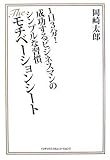 岡崎太郎
1日3分!
成功するビジネスマンの
シンプルな習慣
The
モチベーションシート